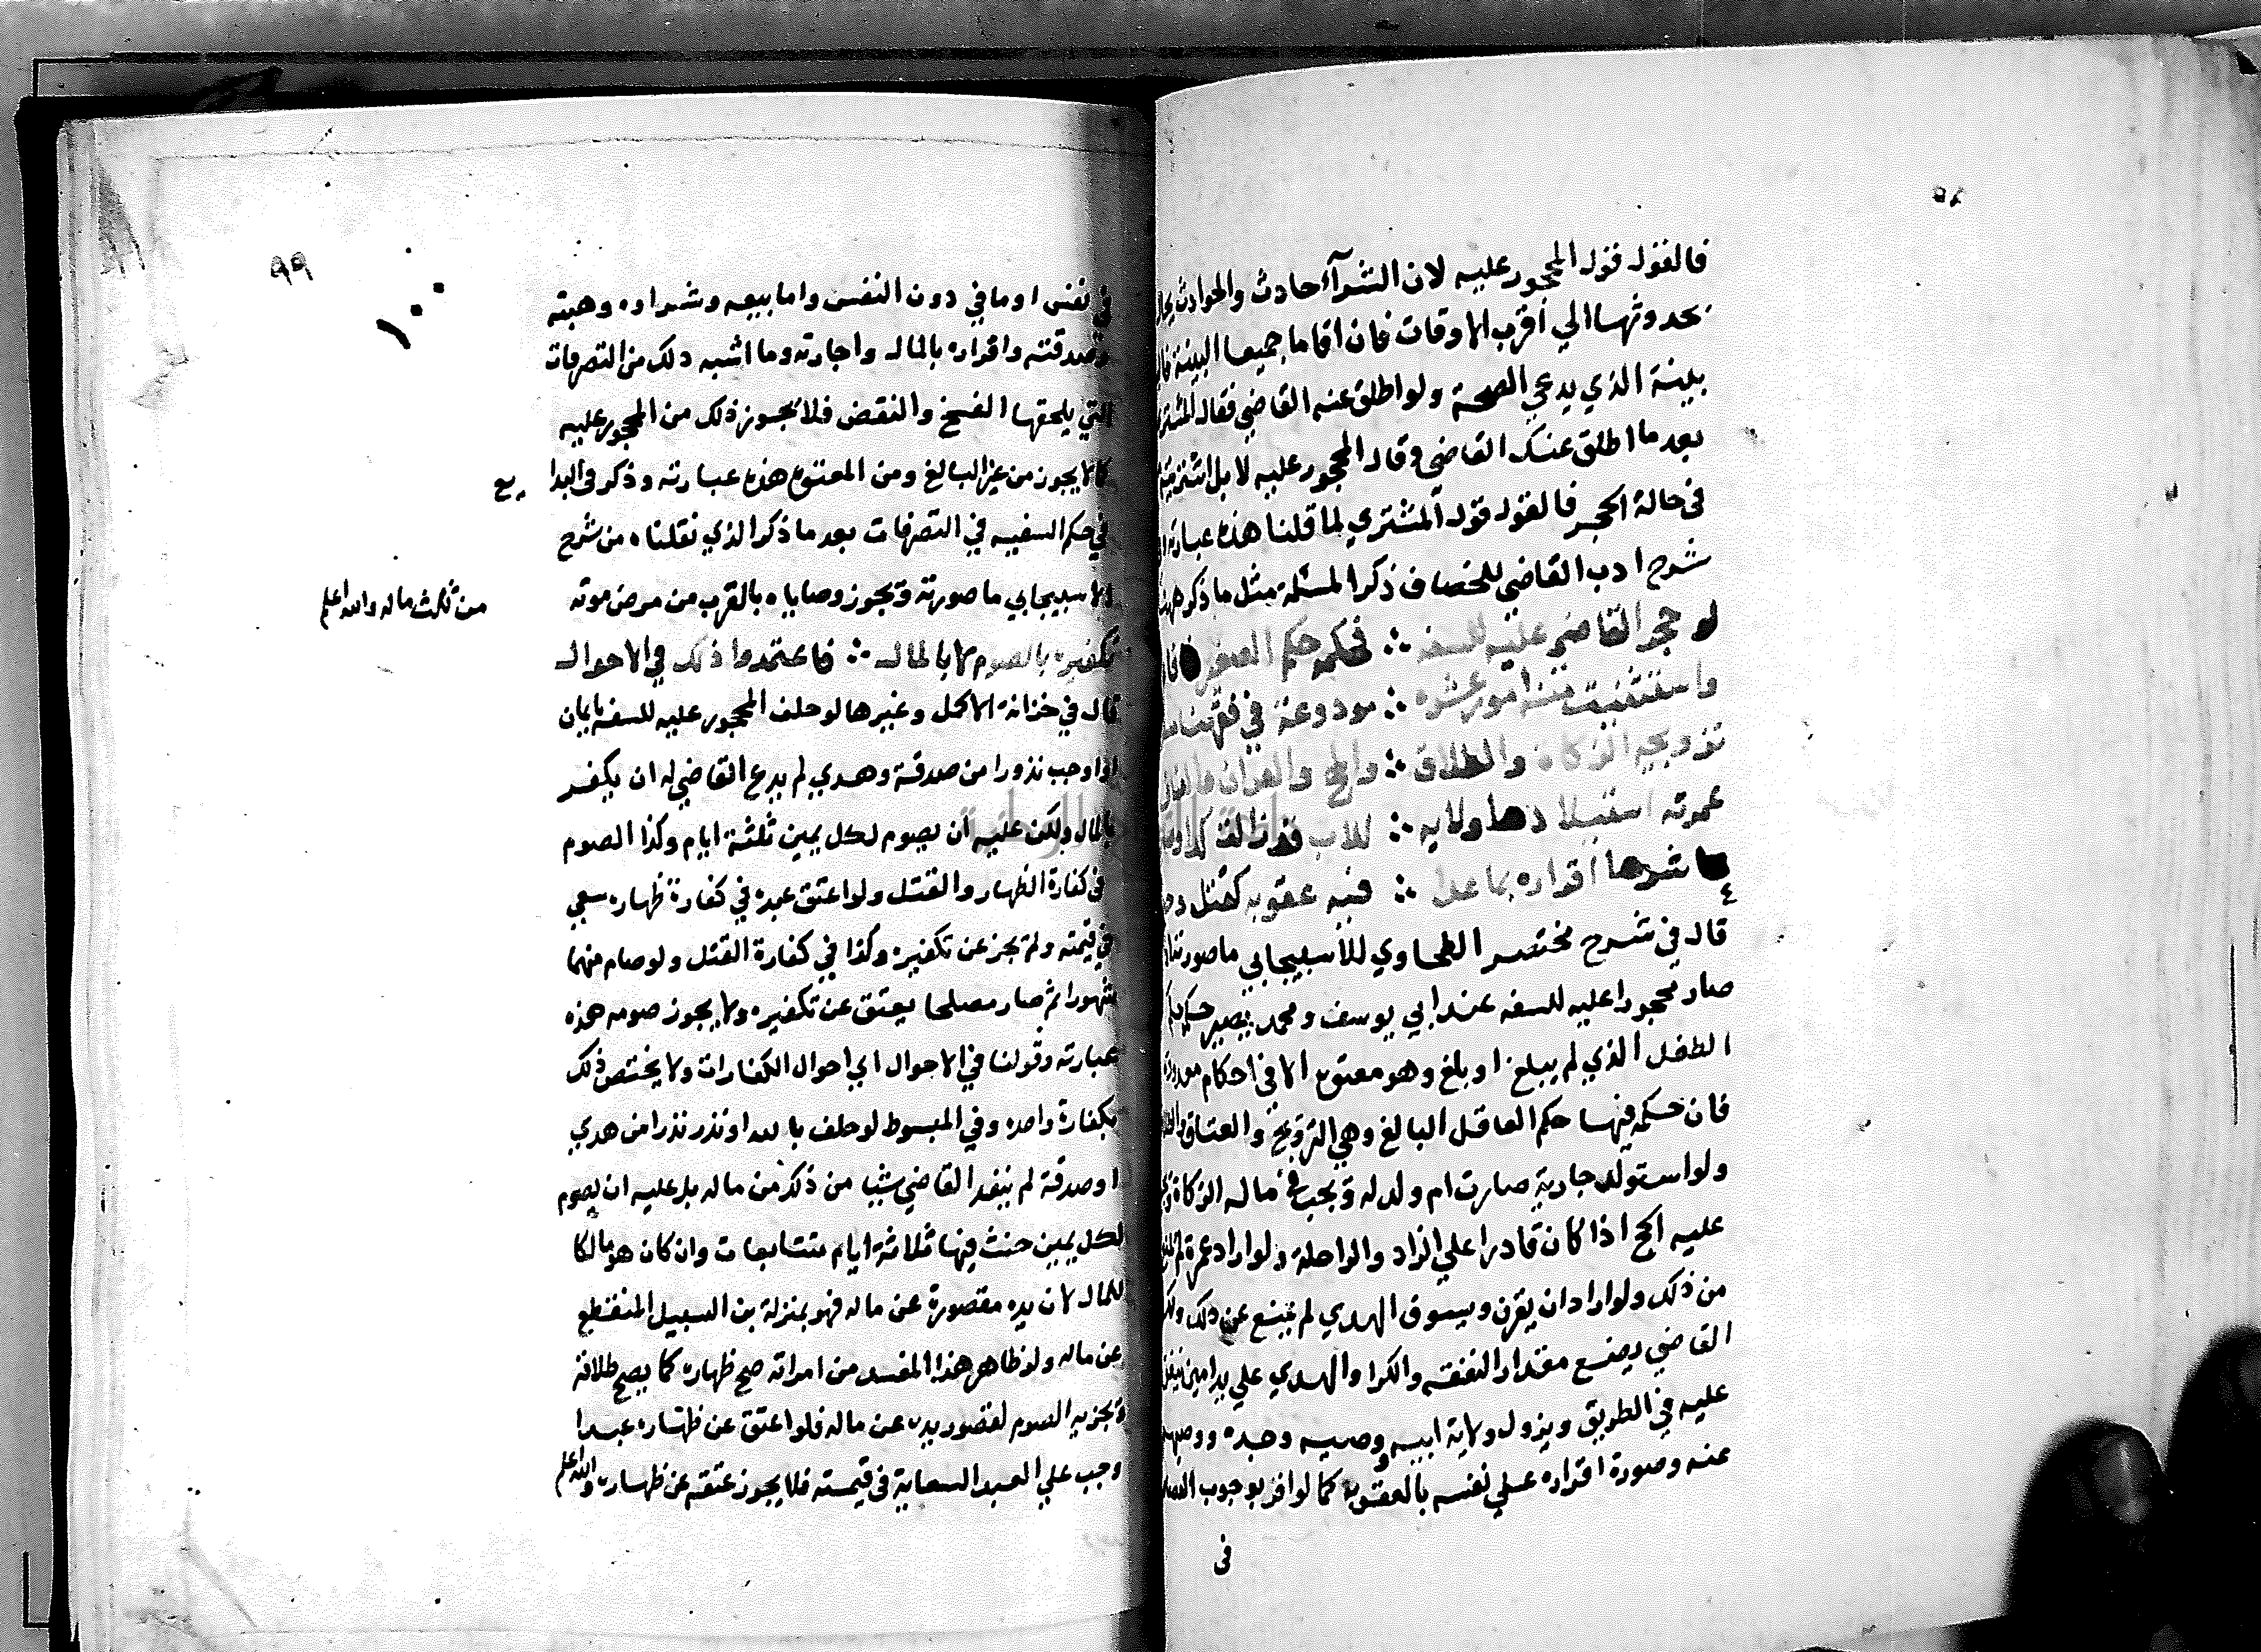 فالقول قول المحجور عليه لان الشرآء حادث والحوادث يحال
بحدوثها الي أقرب الاوقات فان اقاما جميعا البينة
بينة الذي يدعي الصحة ولو اطلق عنه القاضي فقال المشتري
بعد ما اطلق عنك القاضي وقال المحجور عليه لا بل اشتريته
في حالة الحجر فالقول قول المشتري لما قلنا هذه عبارته
شرح ادب القاضي للخصاف ذكر المسئلة مثل ما ذكر ههنا
لو حجر القاضي عليه للسفه ∴ فحكمه حكم الصغير
واستثنيت منه امور عشره ∴ مودوعة في
تزويجه الزكاة والطلاق ∴ والحج والعتاق
عمرته استيلادها ولايه ∴ للاب
اقراره بما علا ∴ فيه عقوبه كقتل
قال في شرح مختصر الطحاوي للأسبيجابي ما صورته
صار محجورا عليه للسفه عند ابي يوسف ومحمد يصير حكمه حكم
الطفل الذي لم يبلغ او بلغ وهو معتوه الا في احكام معدودة
فان حكمه فيها حكم العاقل البالغ وهي التزويج والعتاق
ولو استولد جارية صارت ام ولد له وتجب في ماله الزكاة
عليه الحج اذا كان قادرا علي الزاد والراحلة ولو اراد عمرة لم يمنع
من ذلك ولو اراد ان يقرن ويسوق الهدي لم يمنع عن ذلك
القاضي يضع مقدار النفقه والكرا والهدي علي يد امين
عليه في الطريق ويزول ولاية ابيه ووصيه وجده
عنه وصورة اقراره علي نفسه بالعقوبة كما لو اقر بوجوب القصاص
في
٩٩
١٠٠
في نفس او ما في دون النفس واما بيعه وشراوه وهبته
وصدقته واقراره بالمال واجارته وما اشبه دلك من التصرفات
التي يلحقها الفسخ والنقض فلا يجوز ذلك من المحجور عليه
كما لا يجوز من غير البالغ ومن المعتوه هذه عبارته وذكر في البدايع
في حكم السفيه في التصرفات بعد ما ذكر الذي نقلناه من شرح
الاسبيجابي ما صورته وتجوز وصاياه بالقرب من مرض موته
من ثلث ماله والله اعلم
تكفيره بالصوم لا بالمال ∴ فاعتمدوا ذلك في الاحوال
قال في خزانة الاكمل وغيرها لو حلف المحجور عليه للسفه بايمان
او اوجب نذورا من صدقة وهدي لم يدع القاضي له ان يكفر
بالمال ولكن عليه ان يصوم لكل يمين ثلثة ايام وكذا الصوم
في كفارة الظهار والقتل ولو اعتق عبده في كفارة ظهاره سعي
في قيمته ولم يجز عن تكفيره وكذا في كفارة القتل ولو صام منهما
شهورا ثم صار مصلحا يعتق عن تكفيره ولا يجوز صومه هذه
عبارته وقولنا في الاحوال اي احوال الكفارات ولا يختص ذلك
بكفارة واحده وفي المبسوط لو حلف بالله او نذر نذرا من هدي
او صدقة لم ينفد القاضي شيا من ذلك من ماله بل عليه ان يصوم
لكل يمين حنث فيها ثلاثة ايام متتابعات وان كان هو مالكا
للمال لان يده مقصورة عن ماله فهو بمنزلة بن السبيل المنقطع
عن ماله ولو ظاهر هذا المفسد من امراته صح ظهاره كما يصح طلاقه
ويجزيه الصوم لقصور يده عن ماله فلو اعتق عن ظهاره عبدا
وجب علي العبد السعاية في قيمته فلا يجوز عتقه عن ظهاره والله اعلم